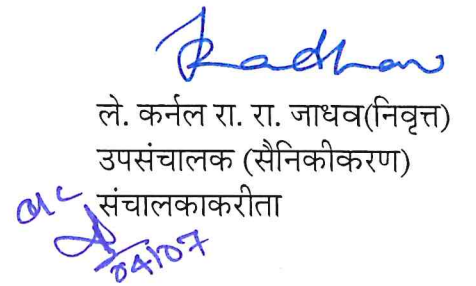 ले. कर्नल रा. रा. जाधव(निवृत्त)
उपसंचालक (सैनिकीकरण)
संचालकाकरीता
04/07